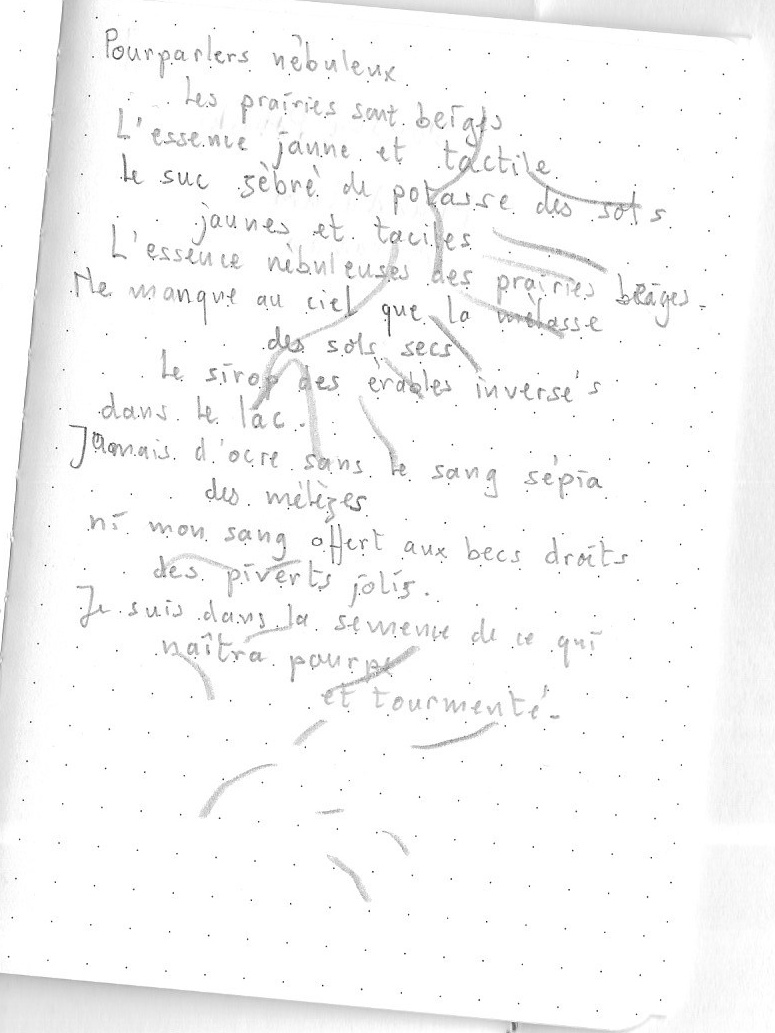 Pourparlers nébuleux
Les prairies sont beiges
L'essence jaune et tactile
le suc zébré de potasse des sols
jaunes et taciles
L'essence nébuleuses des prairies beiges.
Ne manque au ciel que la mélasse
des sols secs
Le sirop des érables inversés
dans le lac.
Jamais d'ocre sans le sang sépia
des mélèzes
ni mon sang offert aux becs droits
des piverts jolis.
Je suis dans la semence de ce qui
naîtra pourpre
et tourmenté.